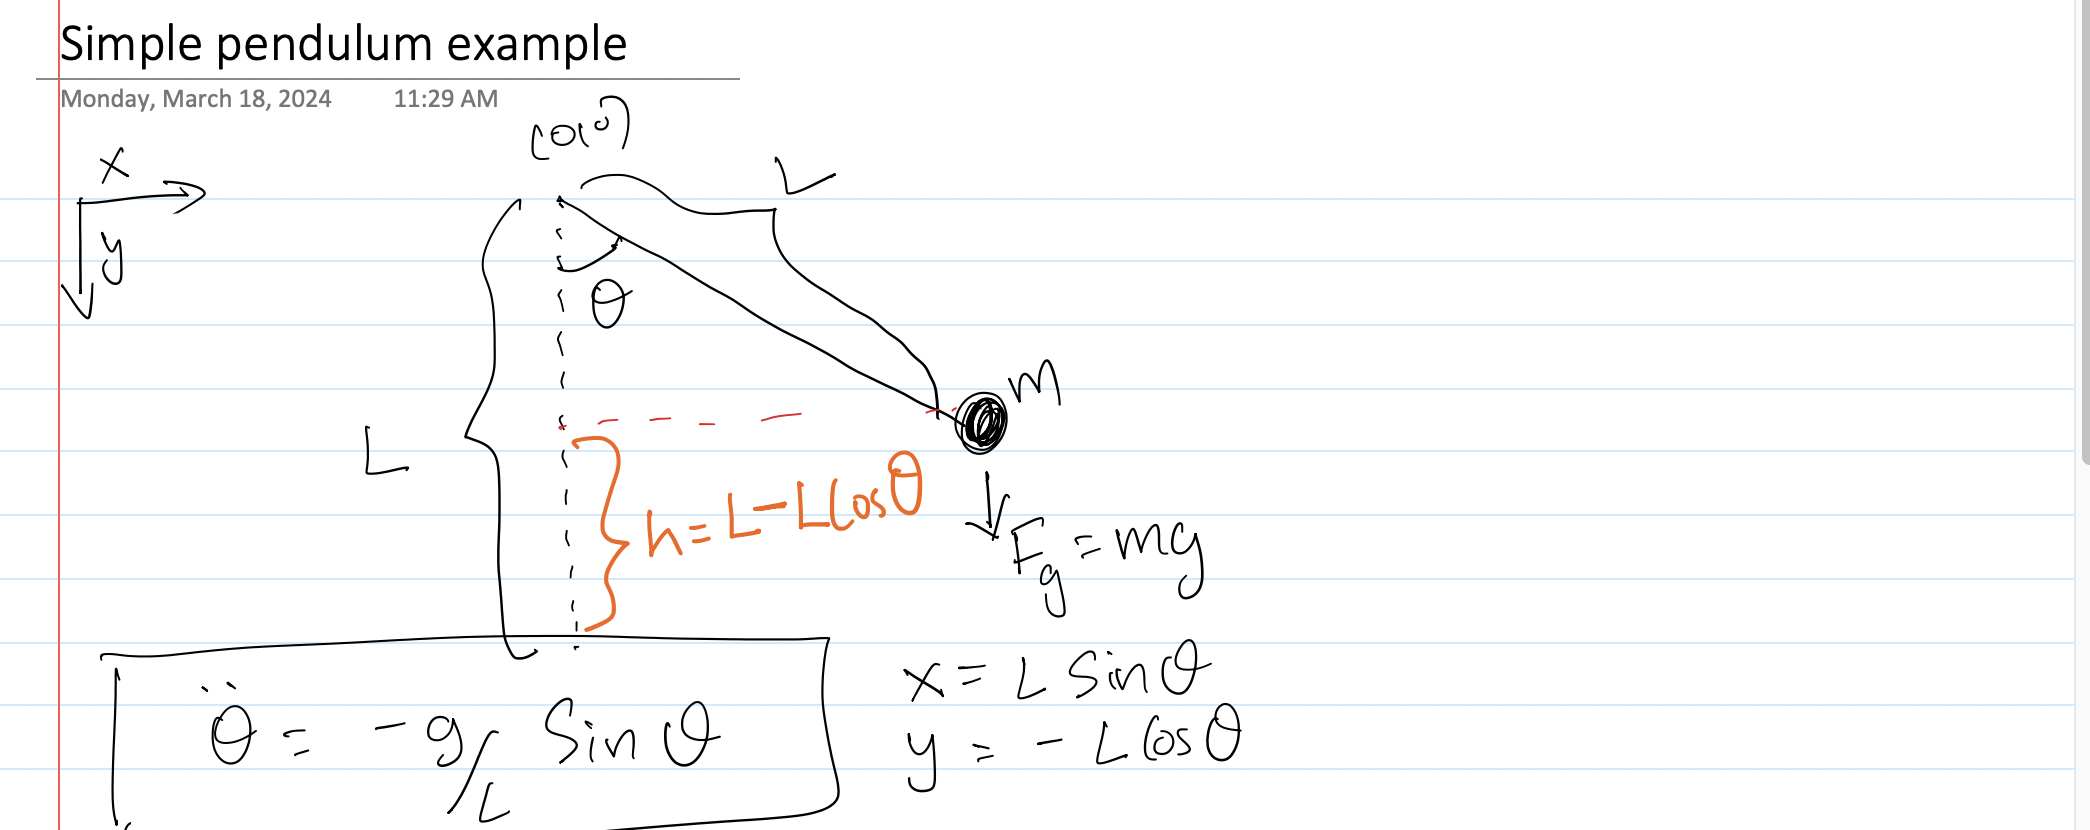 Simple pendulum example
Monday, March 18, 2024 11:29 AM
(0,0)
x
L
y
θ
m
L
h = L - L Cos θ
Fg = mg
x = L Sin θ
θ̈ = -g/L Sin θ
y = - L Cos θ